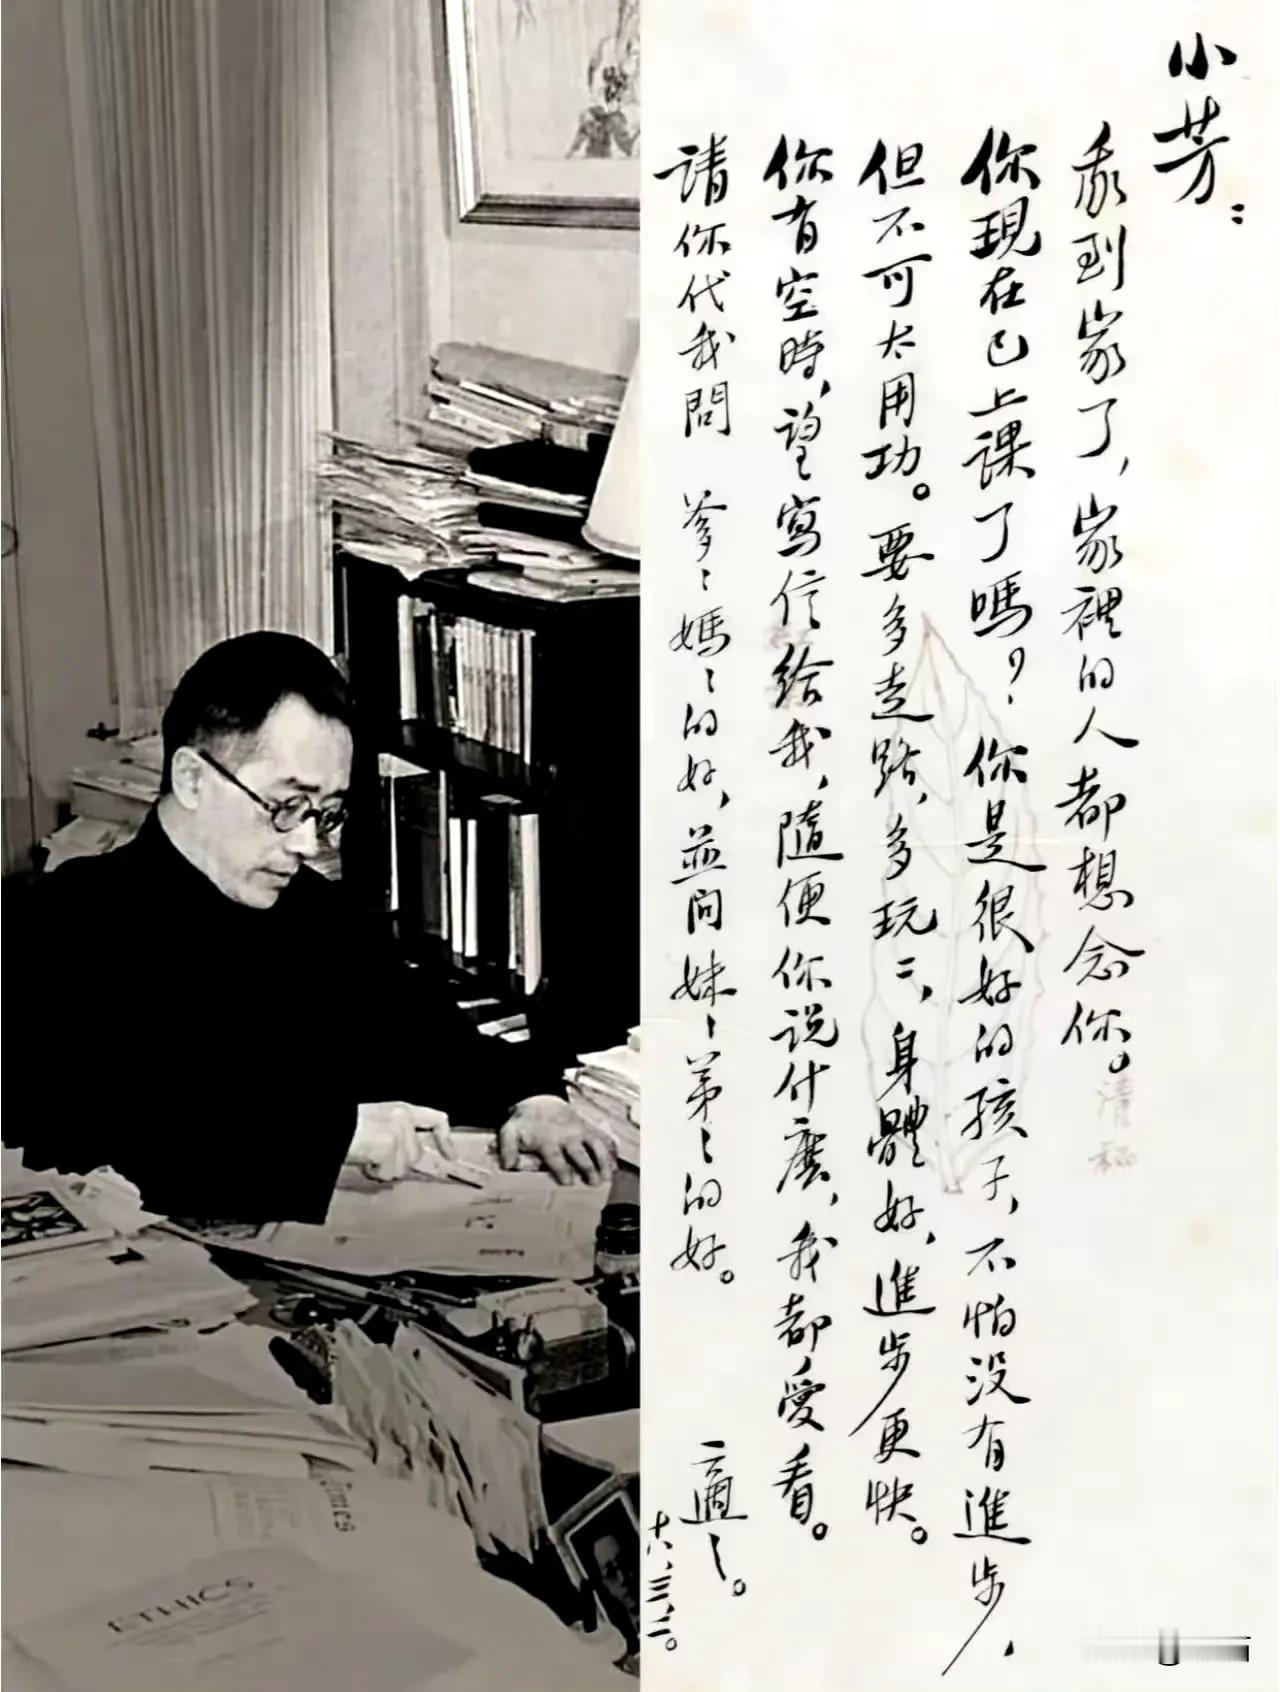 小芳：
我到家了，家裡的人都想念你。
你現在已上課了嗎？你是很好的孩子，不怕没有進步，
但不可太用功。要多走路，多玩〻，身體好，進步更快。
你有空時，望寫信給我，隨便你说什麽，我都愛看。
請你代我問 爹〻媽〻的好，並问妹〻弟〻的好。
適之。
十八、三、二。
清
Times
ETHICS